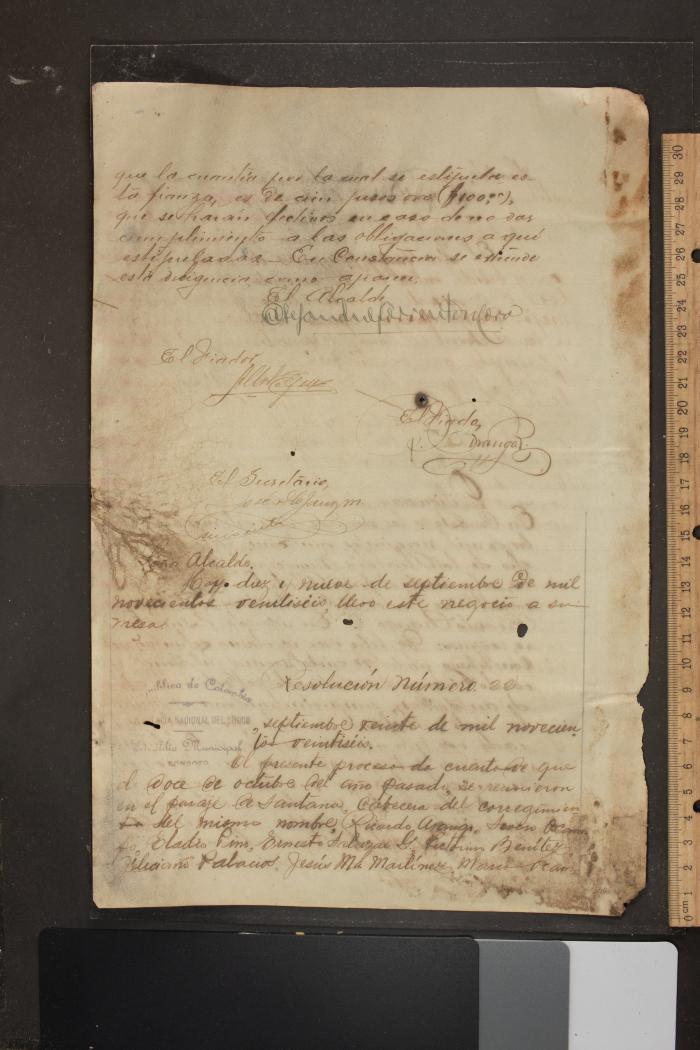 que la cuantía por la cual se estipula es
ta fianza, es de cien pesos oro ($100.00),
que se harán efectivos en caso de no dar
cumplimiento a las obligaciones a quí
estipuladas - En Constancia se extiende
esta diligencia como aparece.
El Alcalde,
El Fiador,
El Fiador,
El Secretario,
Señor Alcalde.
Hoy diez i nueve de septiembre de mil
novecientos veintiseis, llevo este negocio a su
mesa.
Resolución Número 22
pública de Colombia
NACIONAL DEL CHOCÓ
Municipal
, septiembre veinte de mil novecien
tos veintiseis.
El presente proceso da cuenta de que
el doce de octubre del año pasado, se reunieron
en el paraje de Santana, cabecera del corregimien
to del mismo nombre, Ricardo Arango,
Eladio Pino, Ernesto Salazar G. Benítez
Feliciano Palacios, Jesús Ma Martínez,